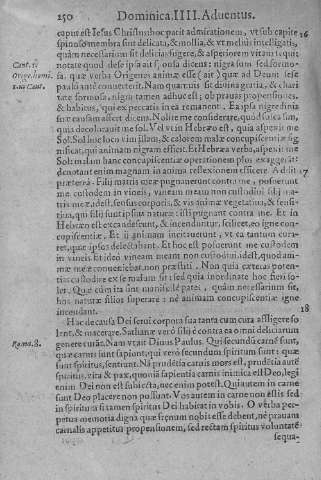 150 Dominica. IIII. Aduentus.
caput est Iesus Christus: hoc patit admirationem, vt sub capite 16
spinoso membra sint delicata, & mollia, & vt melius intelligatis,
quàm necessarium sit delicias fugere, & asperiorem vitam: no-
Cant. 1.
tate quod de se ipsa ait sponsa dicens: nigra sum sed formo-
sa. quæ verba Origenes animæ esse (ait) quæ ad Deum iese
paulò antè conuerterit. Nam quamuis sit diuina gratia, & chari
tate formosa, nigra tamen adhuc est; ob prauas propensiones,
& habitus, qui ex peccatis in ea remanent. Et ipsa nigredinis
suæ causam affert dicens. Nolite me considerare, quòd fusca sum,
quia decolorauit me sol. Vel vt in Hebræo est, quia aspexit me
Sol. Sol hoc loco vim istam, & calorem malæ concupiscentiæ sig
nificat, qui animam nigram efficit. Et Hebræa verba, aspexit me
Sol: malam hanc concupiscentiæ operationem
denotant enim magnam in anima reflexionem efficere. Addit 17
præterea. Filij matris meæ pugnauerunt contra me, posuerunt
me custodem in vineis, vineam meam non custodiui filij ma-
tris meæ, idest, sensus corporis, & vis animæ vegetatiua, & sensi-
tiua, qui filij sunt ipsius naturæ: isti pugnant contra me. Et in
Hebræo est excandescunt, & incenduntur, scilicet, eo igne con-
cupiscentiæ. Et ij animam incitauerunt, vt ea tantum cura-
ret, quæ ipsos delectabant. Et hoc est posuerunt me custodem
in vineis Et ideò vineam meam non custodiui. idest, quod ani-
mæ meæ conueniebat, non præstiti. Non quia cæteras poten-
tias custodire ex se malum sit: sed quia inordinatè hoc fieri so-
let. Quæ cùm ita sint manifestè patet, quàm necessarium sit,
hos naturæ filios superare: nè animam concupiscentiæ igne
incendant. 18
Hac de causa Dei serui corpora sua tanta cum cura affligere so
lent, & macerare. Sathanæ verò filij è contra ea omni deliciarum
Roma. 8.
genere curát. Nam vt ait Diuus Paulus. Qui secundũ carnẽ sunt,
quæ carnis sunt sapiunt, qui verò secundum spiritum sunt: quæ
sunt spiritus, sentiunt. Nã prudẽtia carnis mors est, prudẽtia autẽ
spiritus, vita & pax, quoniã sapientia carnis inimica est Deo, legi
enim Dei non est subiecta, nec enim potest. Qui autem in carne
sunt Deo placere non possunt. Vos autem in carne non estis sed
in spiritu si tamen spiritus Dei habitat in vobis. O verba per-
petua memoria digna quæ frẽnum nobis esse debent, nè prauam
carnalis appetitus propensionem, sed rectam spiritus voluntatẽ
sequa-